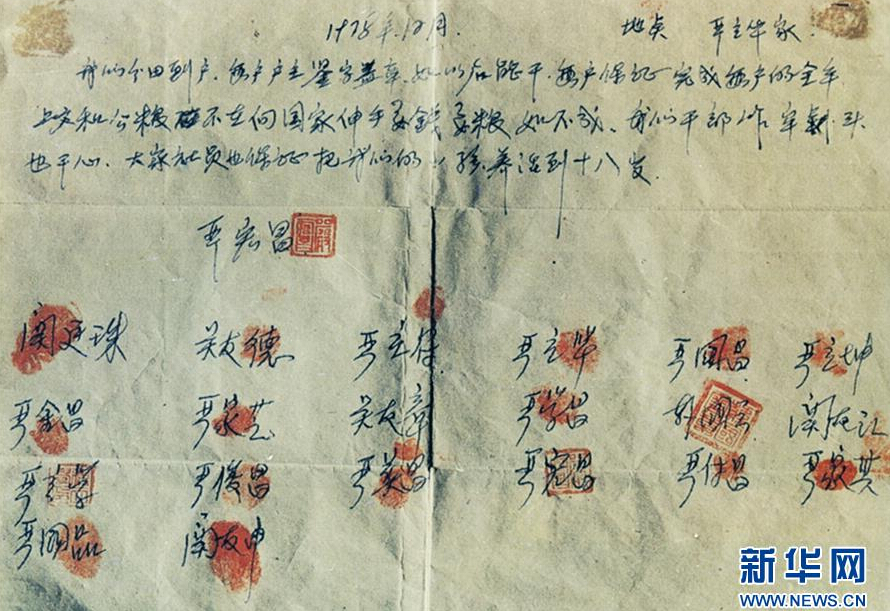 1978年12月. 地点 严立华家.
我们分田到户.每户户主签字盖章.如以后能干.每户保证完成每户的全年
上交和公粮 不在向国家伸手要钱要粮.如不成.我们干部作牢刹头
也干心.大家社员也保证把我们的小孩养活到十八岁.
严宏昌
关廷珠 关友德 严立符 严立华 严国昌 严立坤
严金昌 严家芝 关友章 严学昌 韩国云 关友江
严立学 严俊昌 严美昌 严宏昌 严付昌 严家其
严国品 关友申
新华网
WWW.NEWS.CN